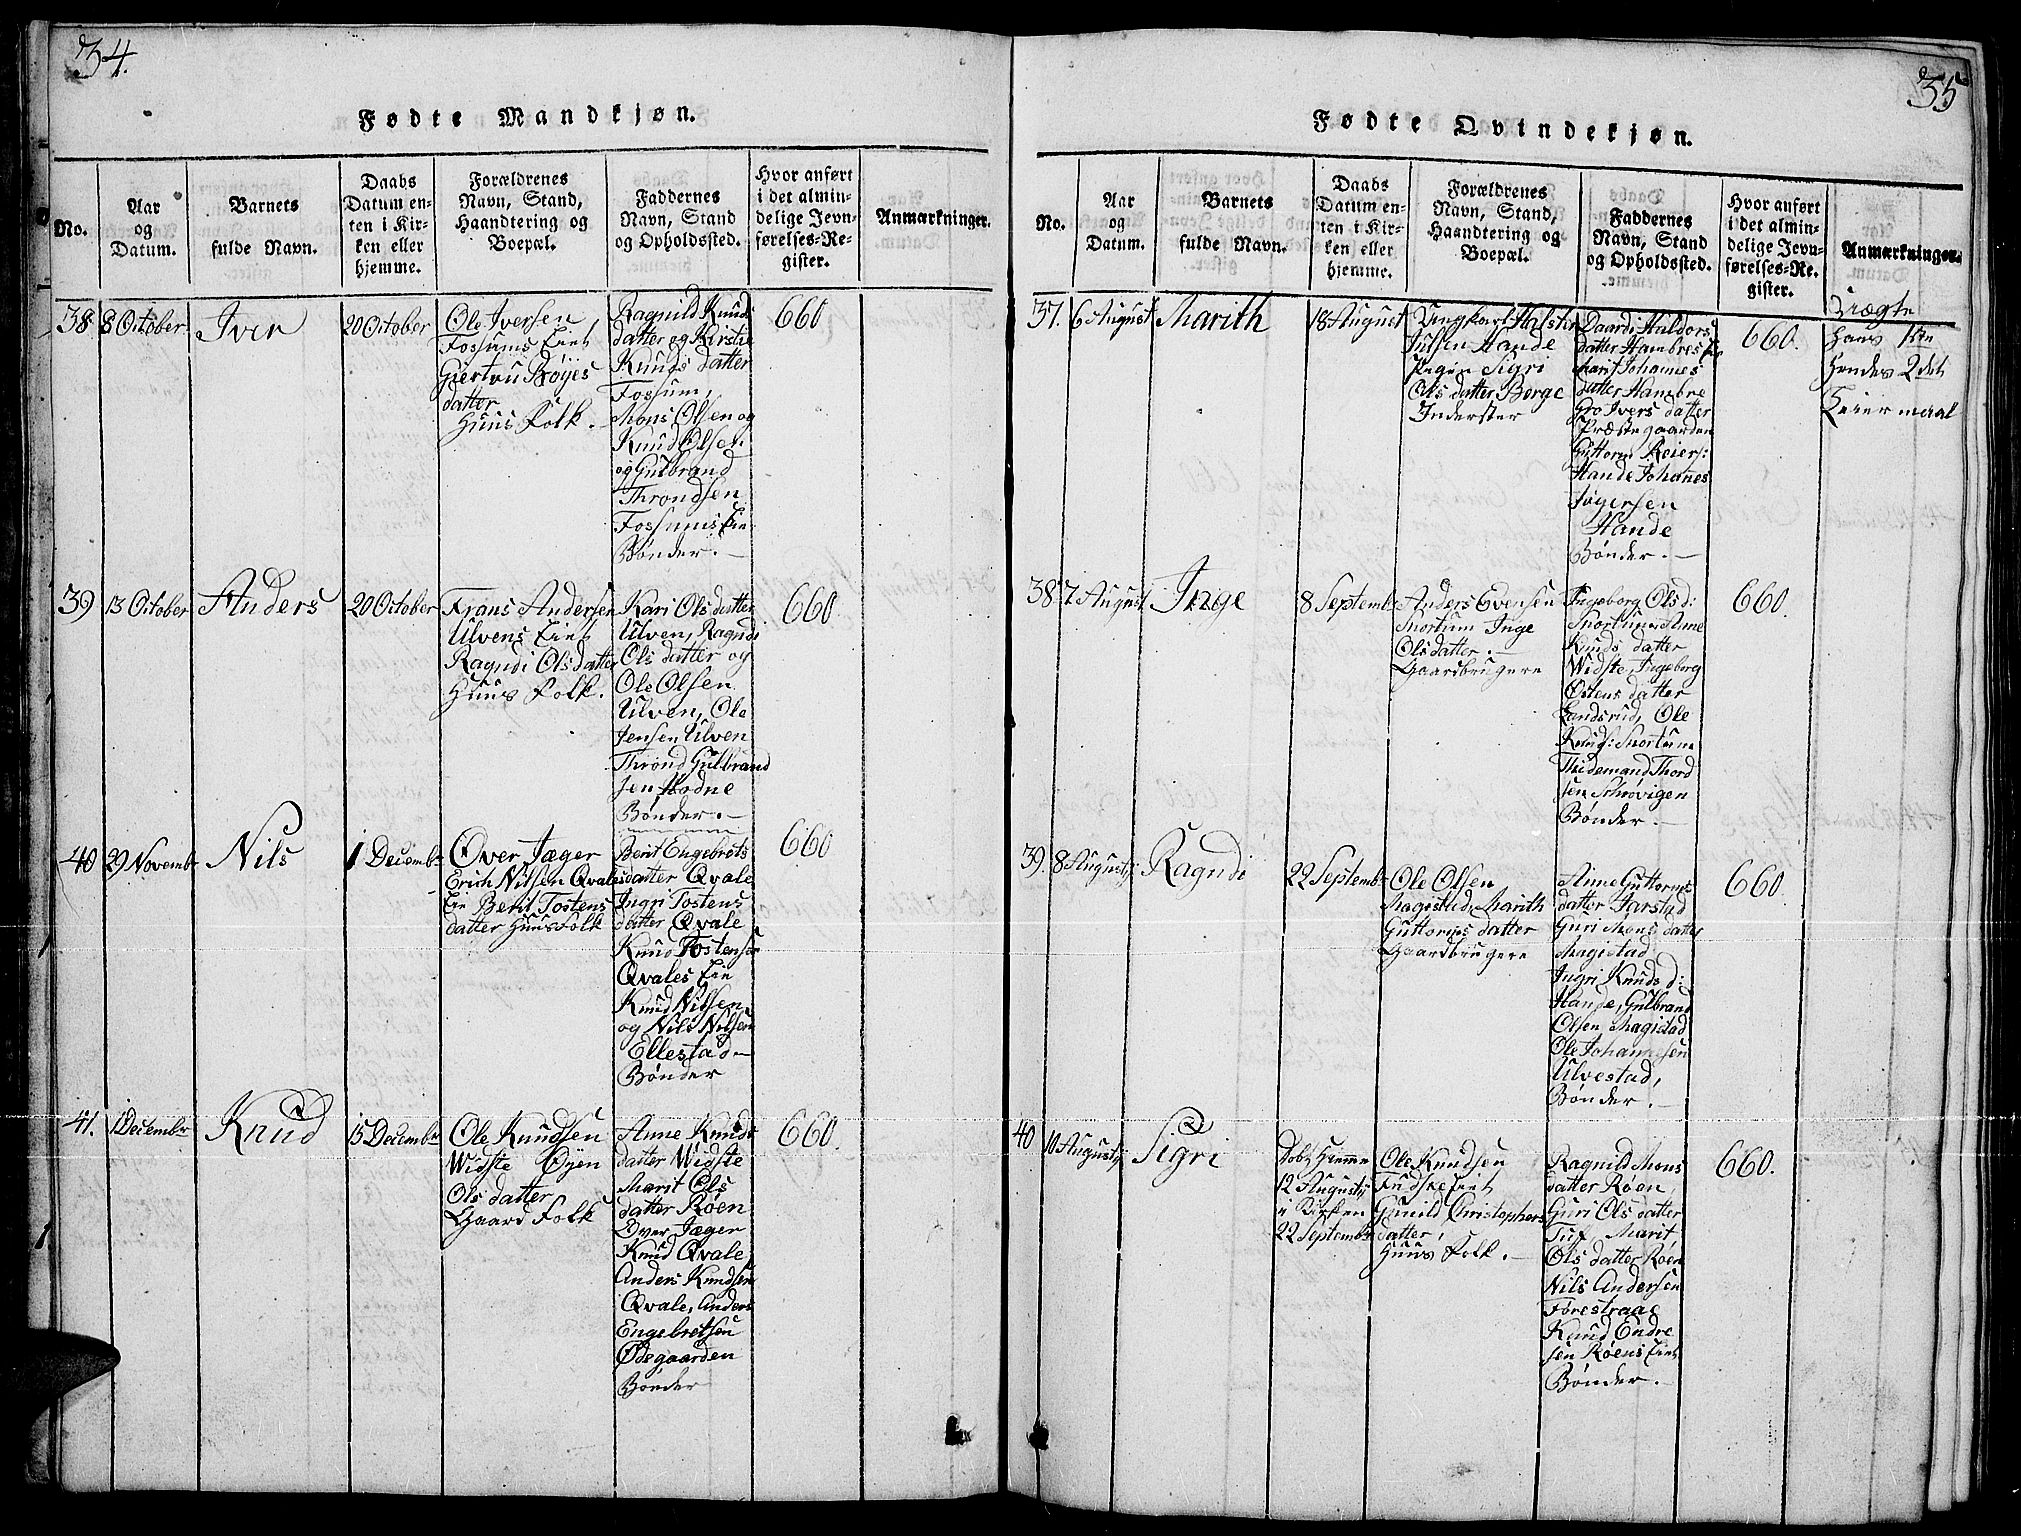 34.
Fødte Mandkjøn.
No.
Aar
og
Datum.
Barnets
fulde Navn.
Daabs
Datum en-
ten i Kir-
ken eller
hjemme.
Forældrenes
Navn, Stand,
Haandtering og
Boepæl.
Faddernes
Navn, Stand
og Opholdssted.
Hvor anført
i det almin-
delige Jevn-
førelses-Re-
gister.
Anmærkninger.
38
8 October
Iver
20 October
Ole Iversen
Fossums Eiet
Giertru Bøyes
datter
Huus Folk.
Ragnild Knuds
datter og Kirstie
Knuds datter
Fossum,
Mons Olsen og
Knud Olsen
og Gulbrand
Throndsen
Fossums Eie
Bønder.
660
39
13 October
Anders
20 October
Frans Andersen
Ulvens Eiet
Ragndi Olsdatter
Huus Folk.
Kari Olsdatter
Ulven, Ragndi
Ols datter og
Ole Olsen
Ulven, Ole
Jensen Ulven
Thrond Gulbrand
sen Hodne
Bønder.
660
40
29 Novembr
Nils
1 Decembr
Over Jæger
Erich Nilsen Qvales
Eie Berit Tostens
datter Huus Folk
Berit Engebrets
datter Qvale
Ingri Tostens
datter Qvale
Knud Tostensen
Qvales Eie
Knud Nilsen
og Nils Nilsen
Ellestad
Bønder
660
41.
1 Decembr
Knud
15 Decembr
Ole Knudsen
Widste Øyen
Ols datter
Gaard Folk
Anne Knuds
datter Widste
Marit Ols
datter Røen
Over Jæger
Knud Qvale
Anders Knudsen
Qvale, Anders
Engebretsen
Ødegaarden
Bønder
660.
35
Fødte Qvindekjøn.
No.
Aar
og
Datum.
Barnets
fulde Navn.
Daabs
Datum en-
ten i Kir-
ken eller
hjemme.
Forældrenes
Navn, Stand,
Haandtering og
Boepæl.
Faddernes
Navn, Stand
og Opholdssted.
Hvor anført
i det almin-
delige Jevn-
førelses-Re-
gister.
Anmærkninger.
37.
6 August
Marith
18 August
Ungkarl Halsten
Hande
Pigen Sigri
Ols datter Berge
Inderster
Haldors
datter Hambres Eie
Marit Johannes
datter Hambre
Gro Ivers datter
Præstegaarden
Guttorm Reiers:
Hande Johanes
Hande
Bønder.
660.
Uægte
Hans 1ste
Hendes 2det
Leiermaal
38
7 August
Inge
8 Septembr
Anders Evensen
Snortum Inge
Olsdatter.
Gaardbrugere
Ingeborg Olsd:
Snortum Anne
Knuds datter
Widste, Ingeborg
Østens datter
Landsrud, Ole
Knuds: Snortum
Thidemand Thord
sen Schrøvigen
Bønder.
660.
39.
8 Augustij
Ragndi
22 Septembr
Ole Olsen
Magistad, Marith
Guttorms datter
Gaardbrugere
Anne Guttorms
datter Jarstad
Guri Mons datter
Magistad
Ingri Knuds d:
Hande, Gulbrand
Olsen Magistad
Ole Johannesen
Ulvestad,
Bønder.
660.
40
10 Augustij
Sigri
Døbt Hiemme
12 Augustij
i Kirken
22 Septembr
Ole Knudsen
Eiet
Gunild Christophers
datter,
Huus Folk.
Ragnild Mons
datter Røen,
Guri Ols datter
Tuf Marit
Ols datter Røen
Nils Andersen
Forestraae
Knud Endre
sen Røens Eiet
Bønder.
660.